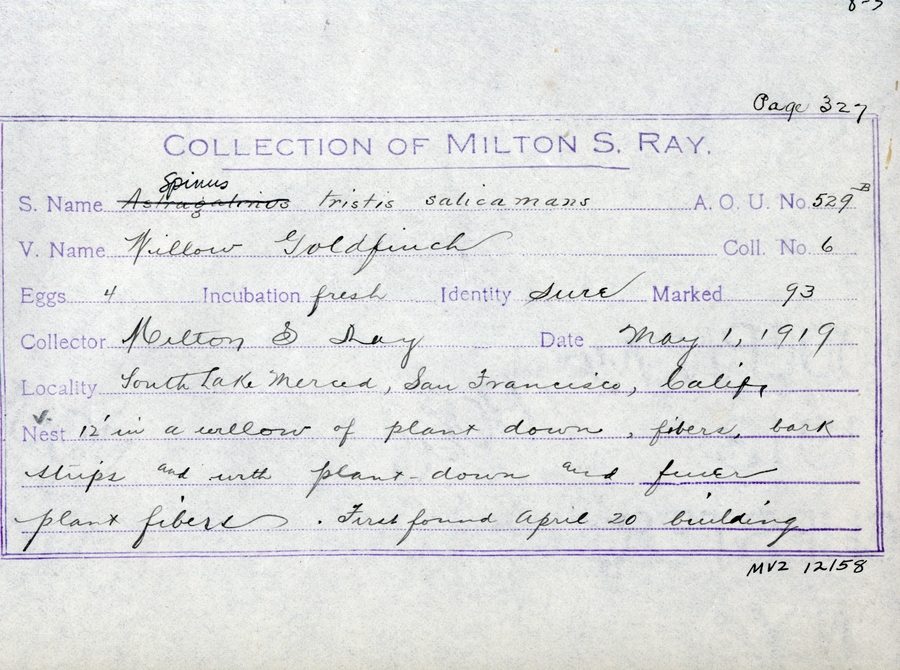 Page 327
COLLECTION OF MILTON S. RAY.
Spinus
S. Name Astragalinus tristis salicamans A. O. U. No. 529 B
V. Name Willow Goldfinch Coll. No. 6
Eggs 4 Incubation fresh Identity sure Marked 93
Collector Milton S Ray Date May 1, 1919
Locality South Lake Merced, San Francisco, Calif,
Nest 12' in a willow of plant down, fibers, bark
strips and with plant-down and finer
plant fibers. First found April 20 building
MVZ 12158